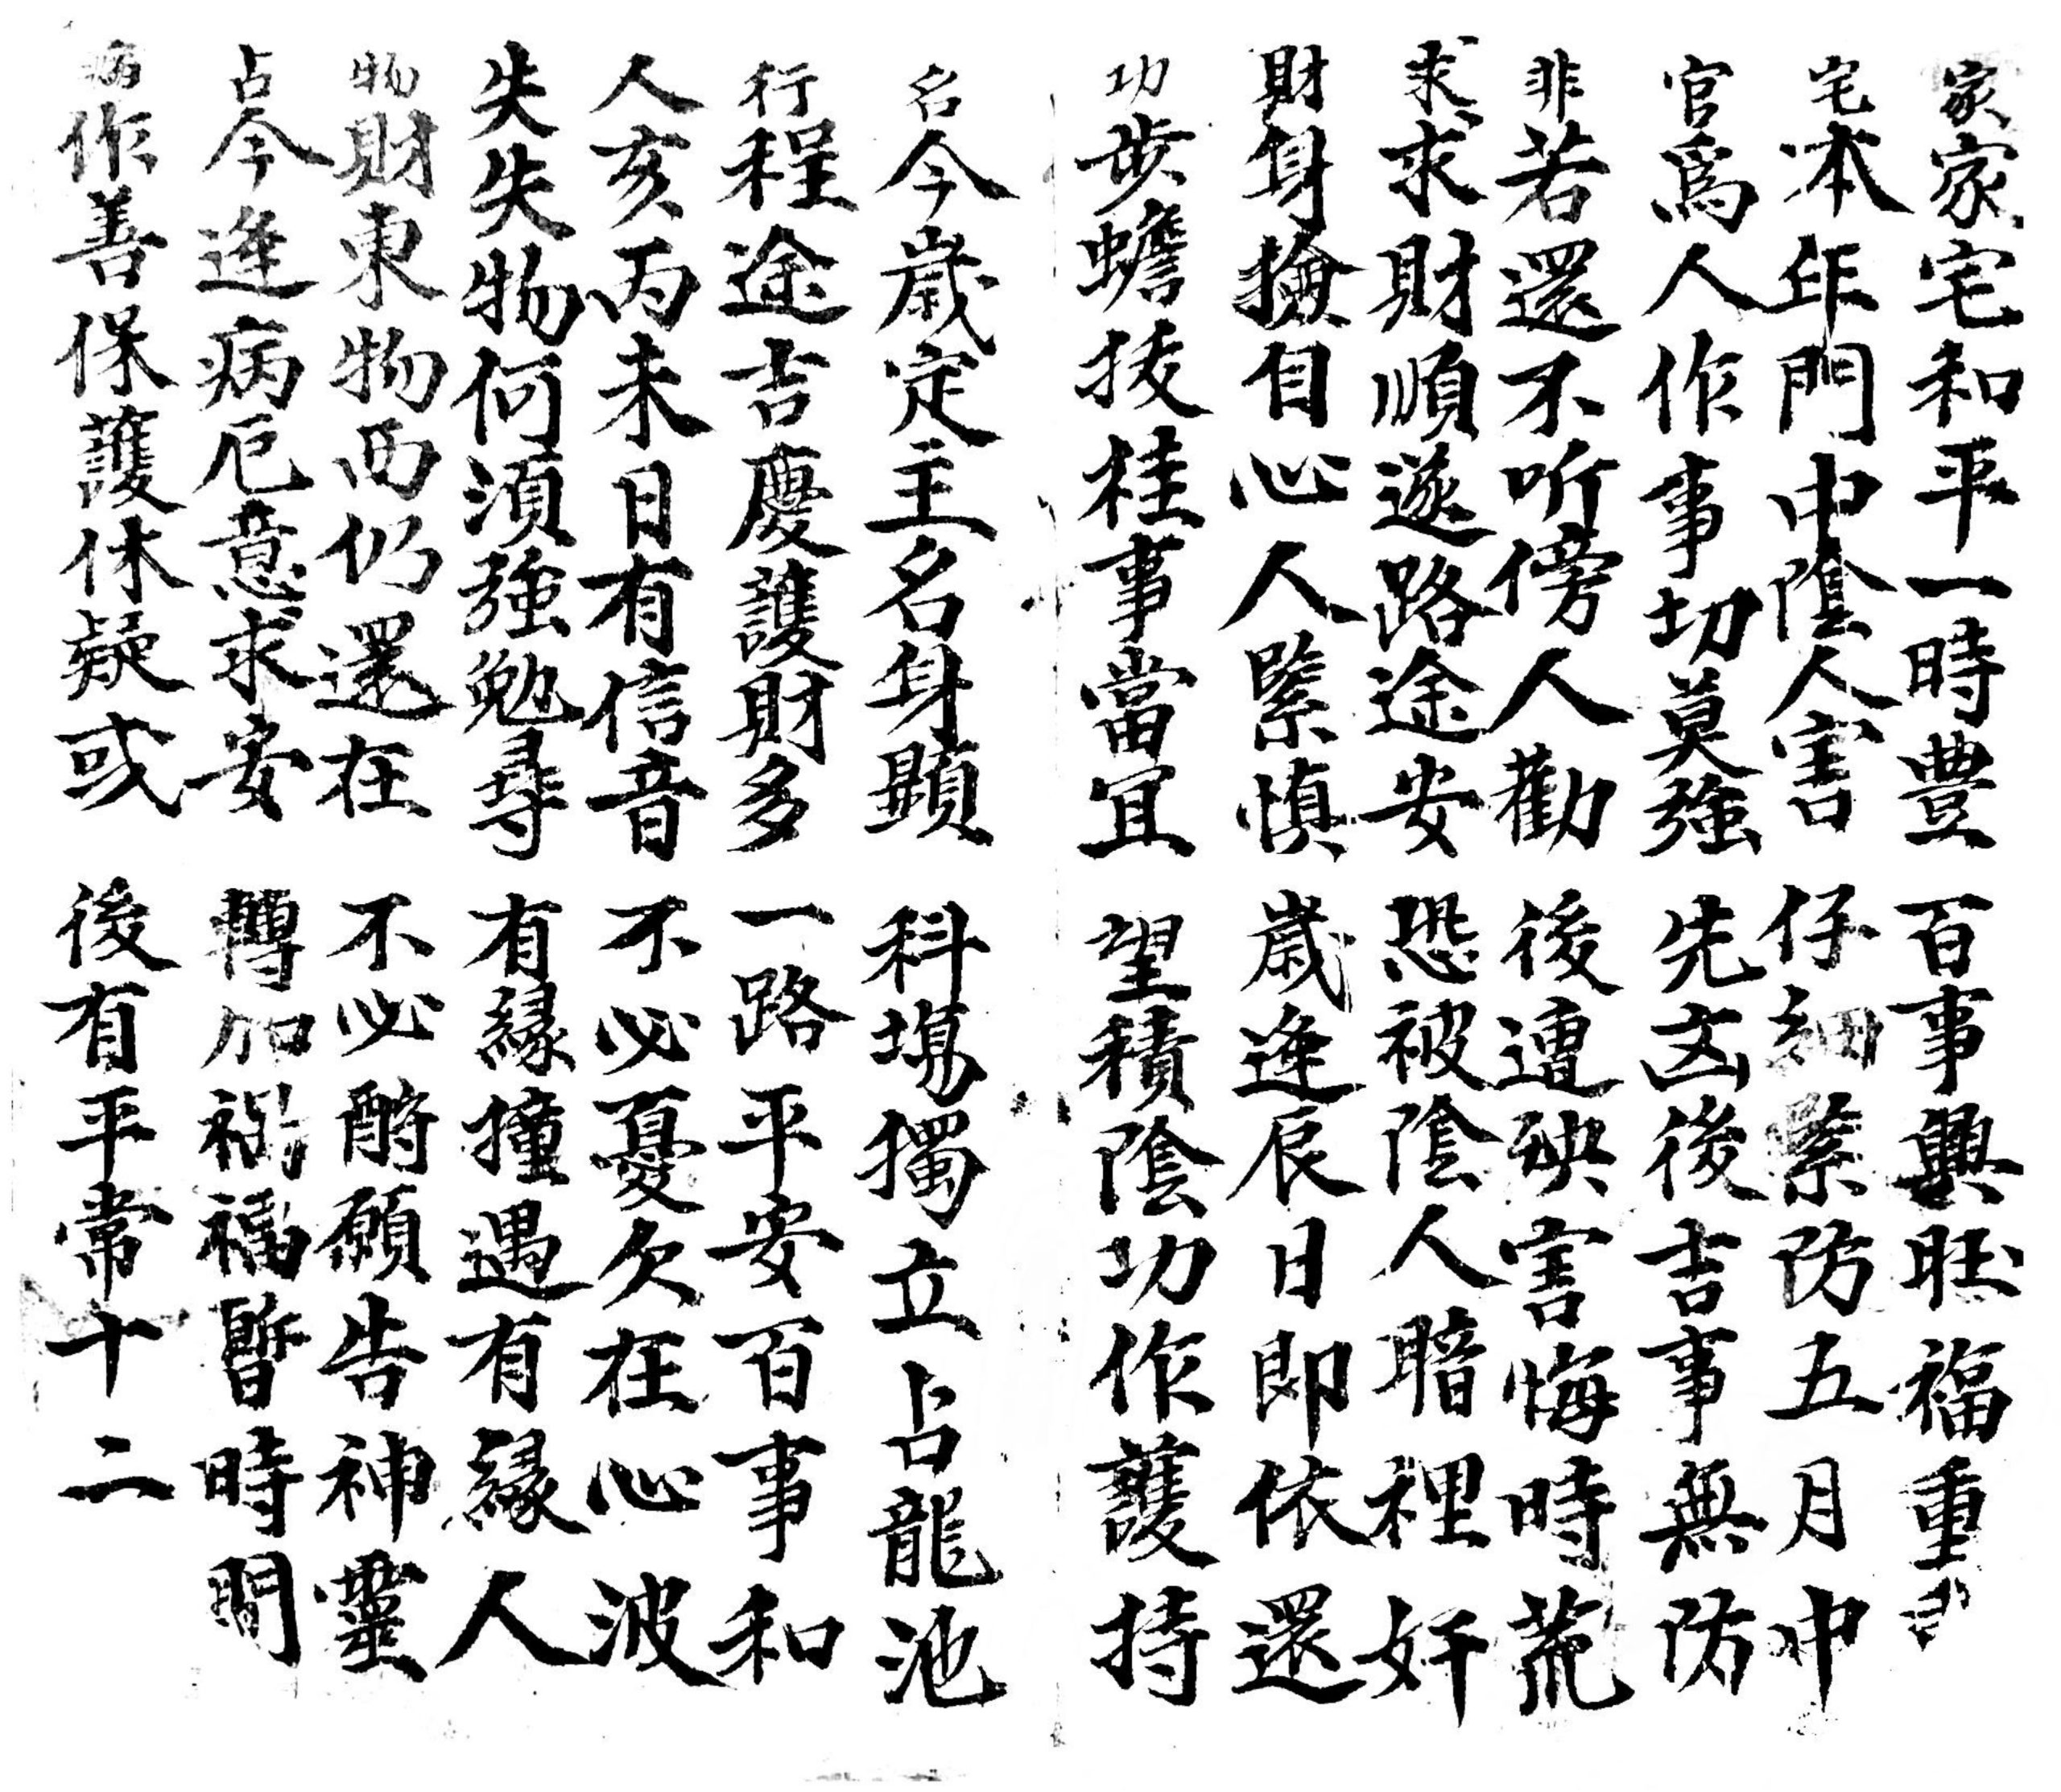 家家宅和平一時豊 百事興旺福重重
宅本年門中陰人害 仔細緊防五月中
官爲人作事切莫強 先凶後吉事無防
非若還不听傍人勸 後遭殃害悔時荒
求求財順遂路途安 恐被陰人暗裡奸
財身撿自心人緊慎 歲逢辰日即依還
功步蟾拔桂事當宜 望積陰功作護持
名今歲定主名身顯 科場獨立占龍池
行程途吉慶護財多 一路平安百事和
人亥丙未日有信音 不必憂欠在心波
失失物何須強勉尋 有緣撞遇有緣人
物財東物西仍還在 不必酧願告神靈
占今逢病厄意求安 轉加禍福暫時間
病作善保護休疑或 後有平常十二